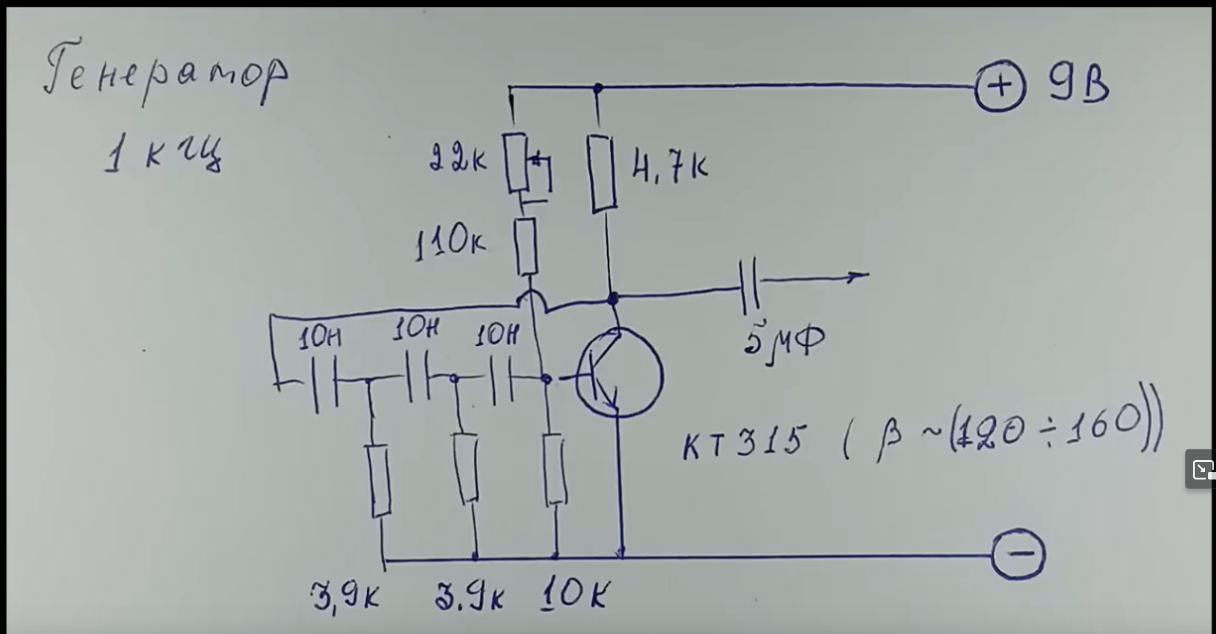 Генератор
1 кгц
+ 9В
22к
4,7к
110к
10н 10н 10н
5мФ
КТ315 ( β ~(120 ÷ 160))
−
3,9к 3.9к 10к